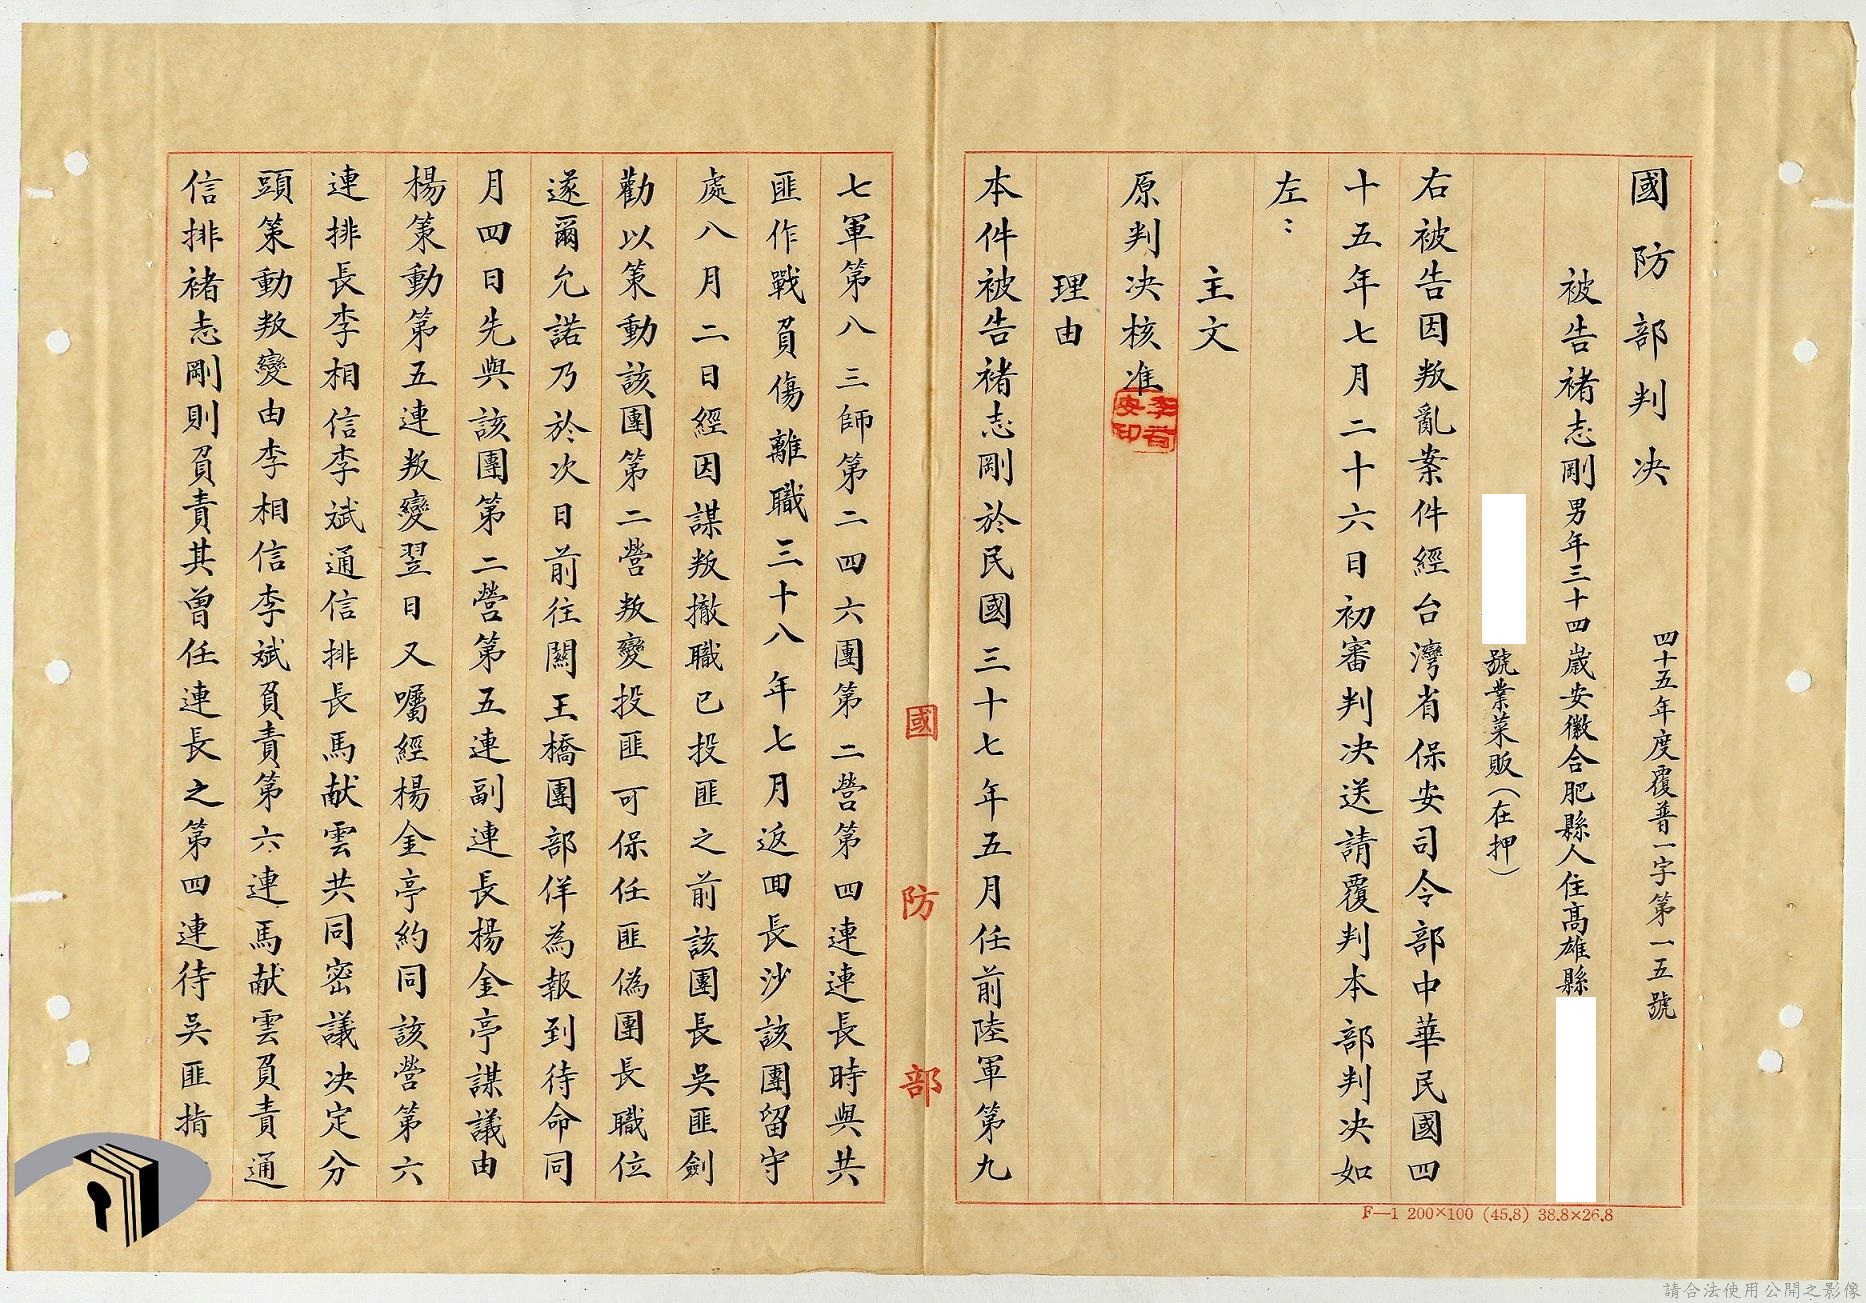 國防部判決
四十五年度覆普一字第一五號
被告褚志剛男年三十四歲安徽合肥縣人住高雄縣
號業菜販（在押）
右被告因叛亂案件經台灣省保安司令部中華民國四
十五年七月二十六日初審判決送請覆判本部判決如
左：
主文
原判決核准
理由
本件被告褚志剛於民國三十七年五月任前陸軍第九
七軍第八三師第二四六團第二營第四連連長時與共
匪作戰負傷離職三十八年七月返回長沙該團留守
處八月二日經因謀叛撤職已投匪之前該團長吳匪劍
勸以策動該團第二營叛變投匪可保任匪偽團長職位
遂爾允諾乃於次日前往關王橋團部佯為報到待命同
月四日先與該團第二營第五連副連長楊金亭謀議由
楊策動第五連叛變翌日又囑經楊金亭約同該營第六
連排長李相信李斌通信排長馬献雲共同密議決定分
頭策動叛變由李相信李斌負責第六連馬献雲負責通
信排褚志剛則負責其曾任連長之第四連待吳匪指
國防部
F—1 200×100 (45.8) 38.8×26.8
請合法使用公開之影像